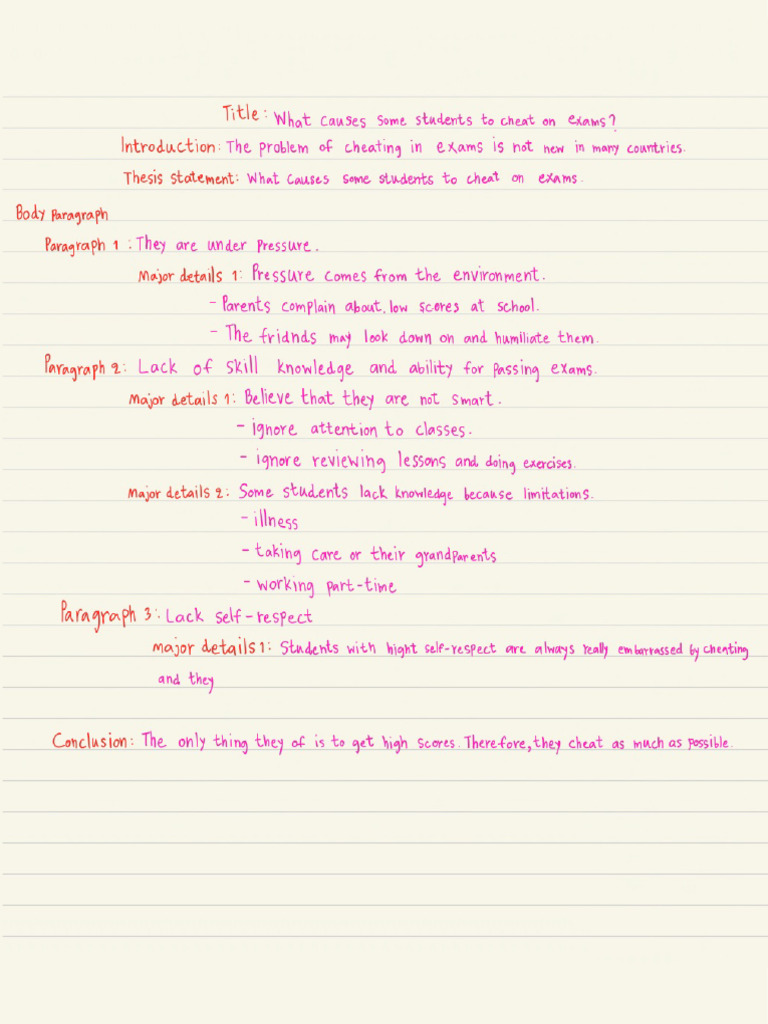 Title: What causes some students to cheat on exams?
Introduction: The problem of cheating in exams is not new in many countries.
Thesis statement: What causes some students to cheat on exams.
Body Paragraph
Paragraph 1: They are under Pressure.
Major details 1: Pressure comes from the environment.
- Parents complain about, low scores at school.
- The fridnds may look down on and humiliate them.
Paragraph 2: Lack of skill knowledge and ability for passing exams.
Major details 1: Believe that they are not smart.
- ignore attention to classes.
- ignore reviewing lessons and doing exercises.
Major details 2: Some students lack knowledge because limitations.
- illness
- taking care or their grandparents
- working part-time
Paragraph 3: Lack self-respect
major details 1: Students with hight self-respect are always really embarrassed by cheating
and they
Conclusion: The only thing they of is to get high scores. Therefore, they cheat as much as possible.